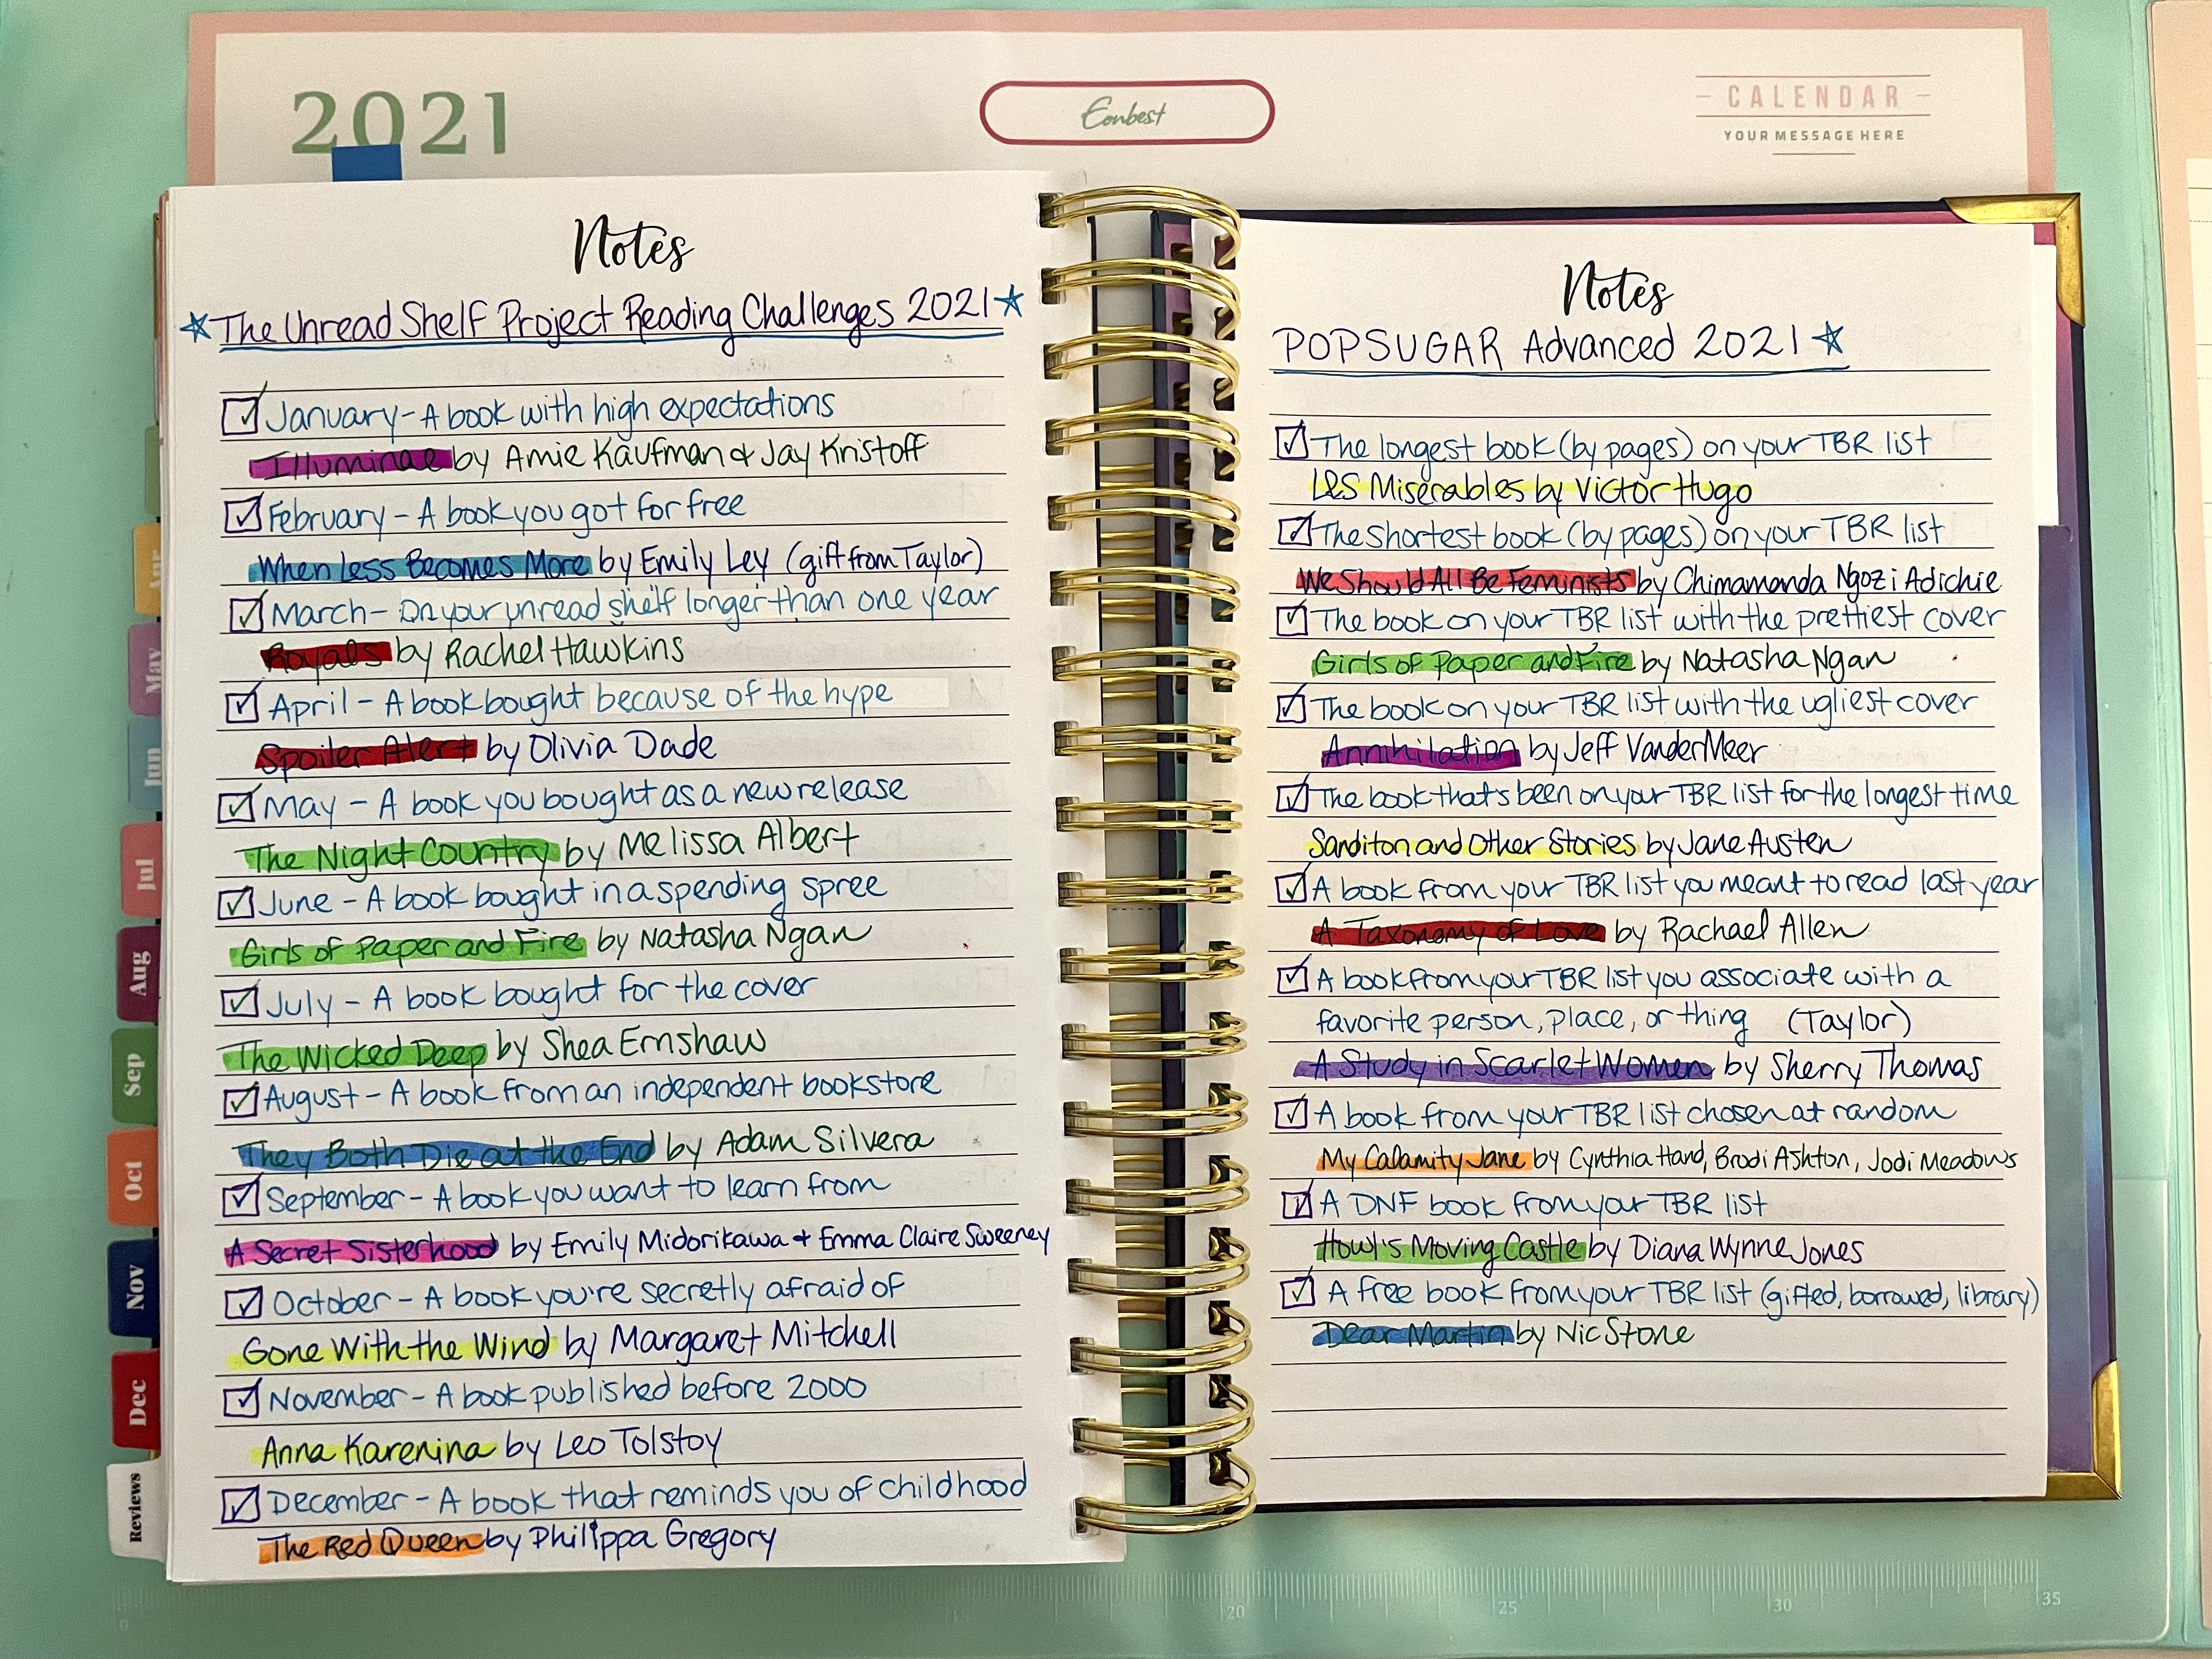 2021
Eonbest
CALENDAR
YOUR MESSAGE HERE
Notes
The Unread Shelf Project Reading Challenges 2021
January - A book with high expectations
Illuminae by Amie Kaufman & Jay Kristoff
February - A book you got for free
When Less Becomes More by Emily Ley (gift from Taylor)
March - On your unread shelf longer than one year
Royals by Rachel Hawkins
April - A book bought because of the hype
Spoiler Alert by Olivia Dade
May - A book you bought as a new release
The Night Country by Melissa Albert
June - A book bought in a spending spree
Girls of Paper and Fire by Natasha Ngan
July - A book bought for the cover
The Wicked Deep by Shea Ernshaw
August - A book from an independent bookstore
They Both Die at the End by Adam Silvera
September - A book you want to learn from
A Secret Sisterhood by Emily Midorikawa + Emma Claire Sweeney
October - A book you're secretly afraid of
Gone With the Wind by Margaret Mitchell
November - A book published before 2000
Anna Karenina by Leo Tolstoy
December - A book that reminds you of childhood
The Red Queen by Philippa Gregory
Notes
POPSUGAR Advanced 2021
The longest book (by pages) on your TBR list
Les Misérables by Victor Hugo
The shortest book (by pages) on your TBR list
We Should All Be Feminists by Chimamanda Ngozi Adichie
The book on your TBR list with the prettiest cover
Girls of Paper and Fire by Natasha Ngan
The book on your TBR list with the ugliest cover
Annihilation by Jeff VanderMeer
The book that's been on your TBR list for the longest time
Sanditon and Other Stories by Jane Austen
A book from your TBR list you meant to read last year
A Taxonomy of Love by Rachael Allen
A book from your TBR list you associate with a
favorite person, place, or thing (Taylor)
A Study in Scarlet Women by Sherry Thomas
A book from your TBR list chosen at random
My Calamity Jane by Cynthia Hand, Brodi Ashton, Jodi Meadows
A DNF book from your TBR list
Howl's Moving Castle by Diana Wynne Jones
A free book from your TBR list (gifted, borrowed, library)
Dear Martin by Nic Stone
Apr
May
Jun
Jul
Aug
Sep
Oct
Nov
Dec
Reviews
0
15
20
25
30
35